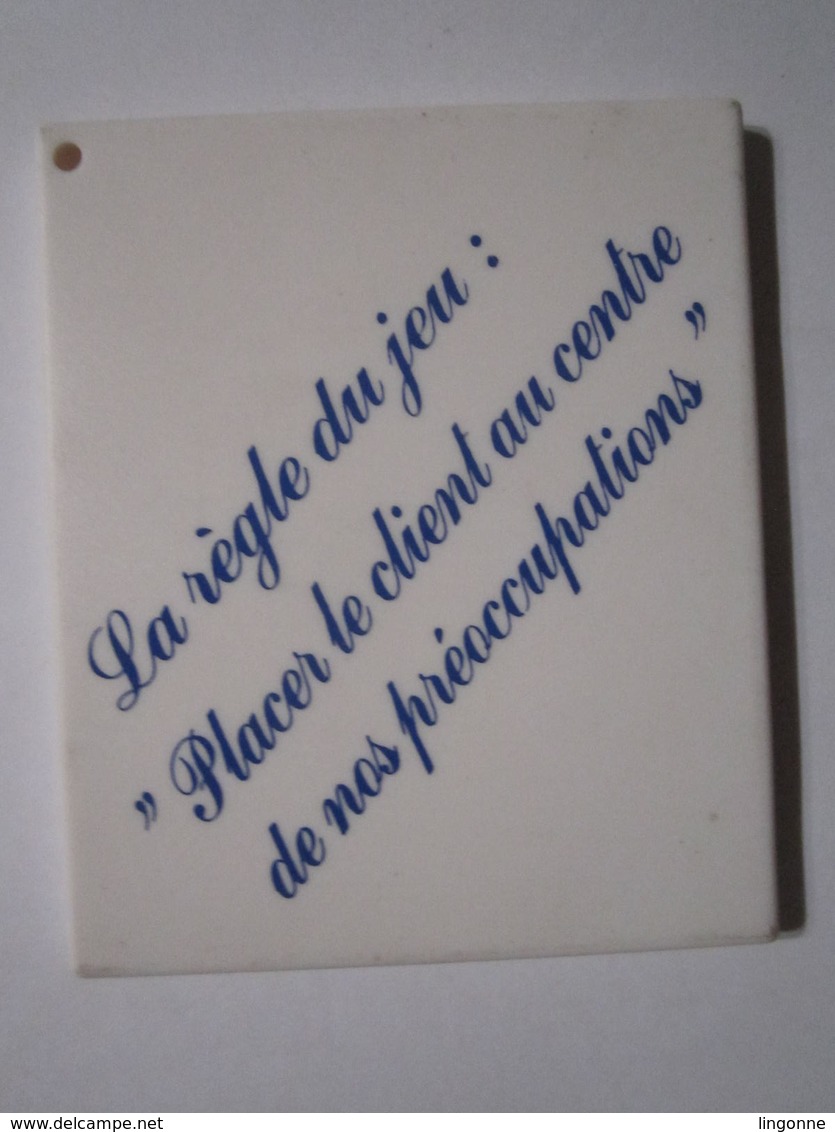 La règle du jeu :
" Placer le client au centre
de nos préoccupations "
www.delcampe.net
lingonne